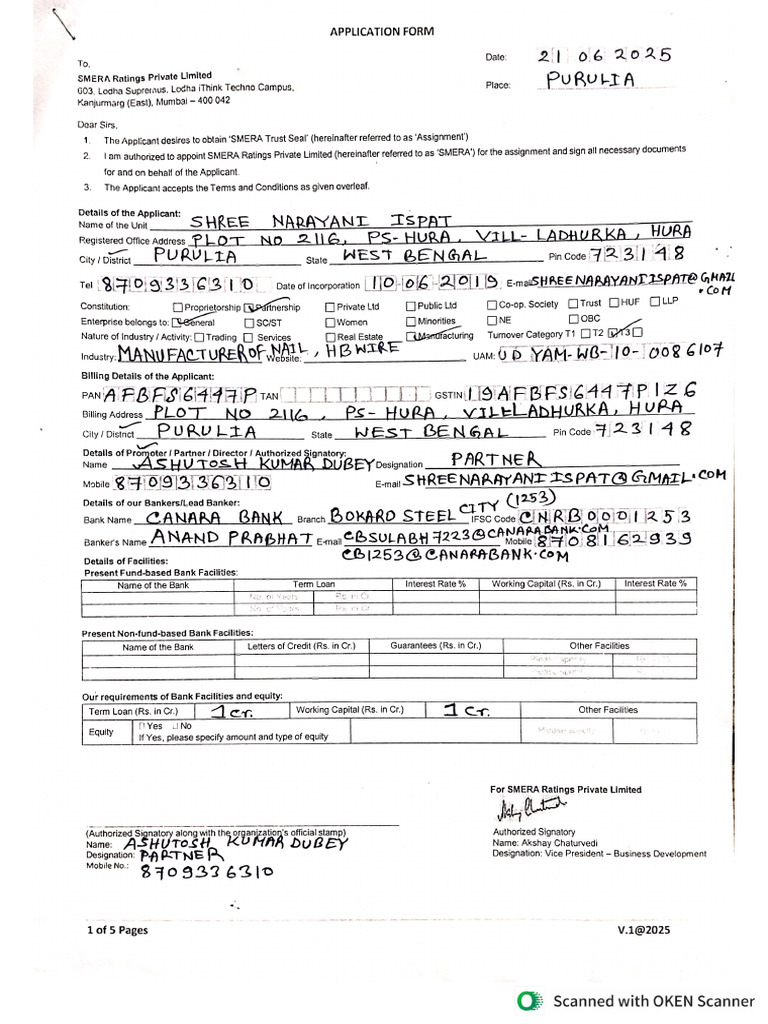 APPLICATION FORM
Date: 21 06 2025
To,
SMERA Ratings Private Limited
603, Lodha Supremus, Lodha iThink Techno Campus,
Kanjurmarg (East), Mumbai – 400 042
Place: PURULIA
Dear Sirs,
1. The Applicant desires to obtain 'SMERA Trust Seal' (hereinafter referred to as 'Assignment')
2. I am authorized to appoint SMERA Ratings Private Limited (hereinafter referred to as 'SMERA') for the assignment and sign all necessary documents
for and on behalf of the Applicant.
3. The Applicant accepts the Terms and Conditions as given overleaf.
Details of the Applicant:
Name of the Unit SHREE NARAYANI ISPAT
Registered Office Address PLOT NO 2116, PS- HURA, VILL- LADHURKA, HURA
City / District PURULIA State WEST BENGAL Pin Code 723148
Tel 8709336310 Date of Incorporation 10-06-2019 E-mail SHREENARAYANIISPAT@GMAIL
.COM
Constitution: Proprietorship Partnership Private Ltd Public Ltd Co-op. Society Trust HUF LLP
Enterprise belongs to: General SC/ST Women Minorities NE OBC
Nature of Industry / Activity: Trading Services Real Estate Manufacturing Turnover Category T1 T2 T3
Industry: MANUFACTURER OF NAIL, HB WIRE Website: UAM: UDYAM-WB-10-0086107
Billing Details of the Applicant:
PAN AFBFS6447P TAN GSTIN 19AFBFS6447P1Z6
Billing Address PLOT NO 2116, PS- HURA, VILL LADHURKA, HURA
City / District PURULIA State WEST BENGAL Pin Code 723148
Details of Promoter / Partner / Director / Authorized Signatory:
Name ASHUTOSH KUMAR DUBEY Designation PARTNER
Mobile 8709336310 E-mail SHREENARAYANIISPAT@GMAIL.COM
Details of our Bankers/Lead Banker:
Bank Name CANARA BANK Branch BOKARO STEEL CITY (1253) IFSC Code CNRB0001253
Banker's Name ANAND PRABHAT E-mail CBSULABH7223@CANARABANK.COM Mobile 8708162939
CB1253@CANARABANK.COM
Details of Facilities:
Present Fund-based Bank Facilities:
Name of the Bank Term Loan Interest Rate % Working Capital (Rs. in Cr.) Interest Rate %
No. of Years Rs. in Cr
No. of Years Rs. in Cr
Present Non-fund-based Bank Facilities:
Name of the Bank Letters of Credit (Rs. in Cr.) Guarantees (Rs. in Cr.) Other Facilities
Please specify
Our requirements of Bank Facilities and equity:
Term Loan (Rs. in Cr.) 1 cr. Working Capital (Rs. in Cr.) 1 cr. Other Facilities
Equity Yes No
If Yes, please specify amount and type of equity Please specify
For SMERA Ratings Private Limited
(Authorized Signatory along with the organization's official stamp)
Name: ASHUTOSH KUMAR DUBEY
Designation: PARTNER
Mobile No.: 8709336310
Authorized Signatory
Name: Akshay Chaturvedi
Designation: Vice President – Business Development
1 of 5 Pages V.1@2025
Scanned with OKEN Scanner